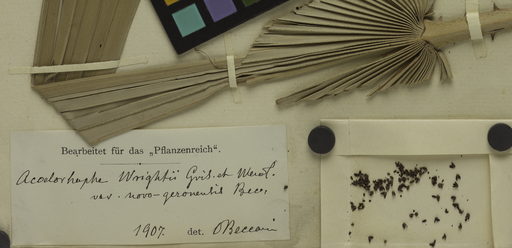 Bearbeitet für das „Pflanzenreich“.
Acoelorhaphe Wrightii Gris. et Wendl.
var. novo-geronensis Becc.
1907. det. OBeccari